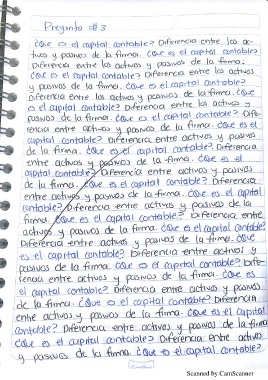 Pregunta #3
¿Que es el capital contable? Diferencia entre los ac-
tivos y pasivos de la firma. ¿Que es el capital contable?
Diferencia entre los activos y pasivos de la firma.
¿Que es el capital contable? Diferencia entre los activos
y pasivos de la firma. ¿Que es el capital contable?
Diferencia entre los activos y pasivos de la firma. ¿Que
es el capital contable? Diferencia entre los activos y
pasivos de la firma. ¿Que es el capital contable? Dife-
rencia entre activos y pasivos de la firma. ¿Que es el
capital contable? Diferencia entre activos y pasivos
de la firma. ¿Que es el capital contable? Diferencia
entre activos y pasivos de la firma. ¿Que es el
capital contable? Diferencia entre activos y pasivos
de la firma. ¿Que es el capital contable? Diferencia
entre activos y pasivos de la firma. ¿Que es el capital
contable? Diferencia entre activos y pasivos de la
firma. ¿Que es el capital contable? Diferencia entre
activos y pasivos de la firma. ¿Que es el capital contable?
Diferencia entre activos y pasivos de la firma. ¿Que
es el capital contable? Diferencia entre activos y
pasivos de la firma. ¿Que es el capital contable? Dife-
rencia entre activos y pasivos de la firma. ¿Que es
el capital contable? Diferencia entre activos y pasivos
de la firma. ¿Que es el capital contable? Diferencia
entre activos y pasivos de la firma. ¿Que es el capital
contable? Diferencia entre activos y pasivos de la firma.
¿Que es el capital contable? Diferencia entre activos
y pasivos de la firma. ¿Que es el capital contable?
Scanned by CamScanner